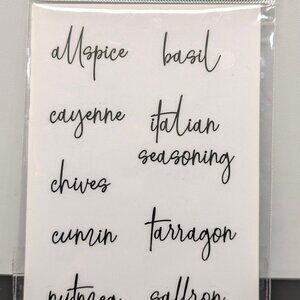 allspice
basil
cayenne
italian
seasoning
chives
cumin
tarragon
nutmeg
saffron